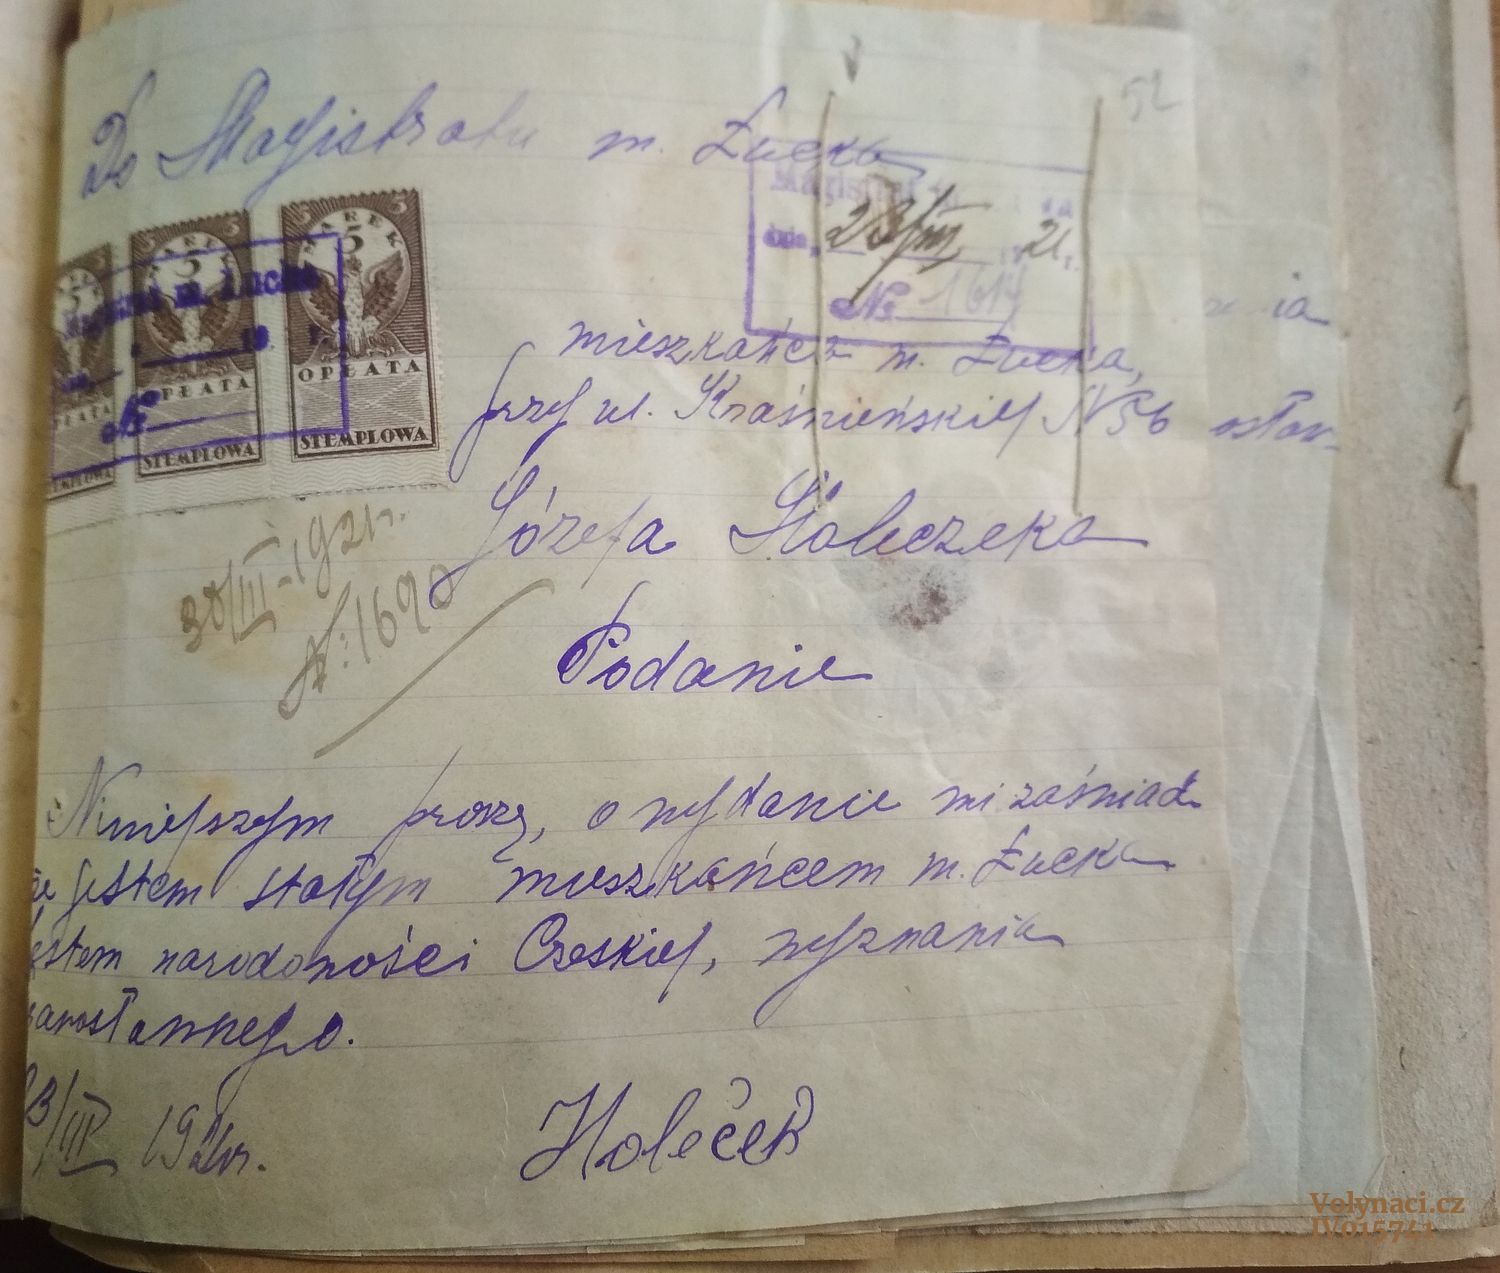 52
Do Magistratu m. Łucka
Magistrat
dnia 23/III 1921 r.
№ 1614
5 MAREK 5
5
OPŁATA
STEMPLOWA
MAREK
5
OPŁATA
STEMPLOWA
5
OPŁATA
STEMPLOWA
Magistrat m. Łucka
19 r.
№
mieszkańca m. Łucka,
przy ul. Kraśnieńskiej N 56
Józefa Holeczeka
30/III-1921r.
N: 1690
Podanie
Niniejszym proszę, o wydanie mi zaświad.
że jestem stałym mieszkańcem m. Łucka
jestem narodoności Czeskiej, wyznania
prawosławnego.
23/III 1921r.
Holeček
Volynaci.cz
IV015741